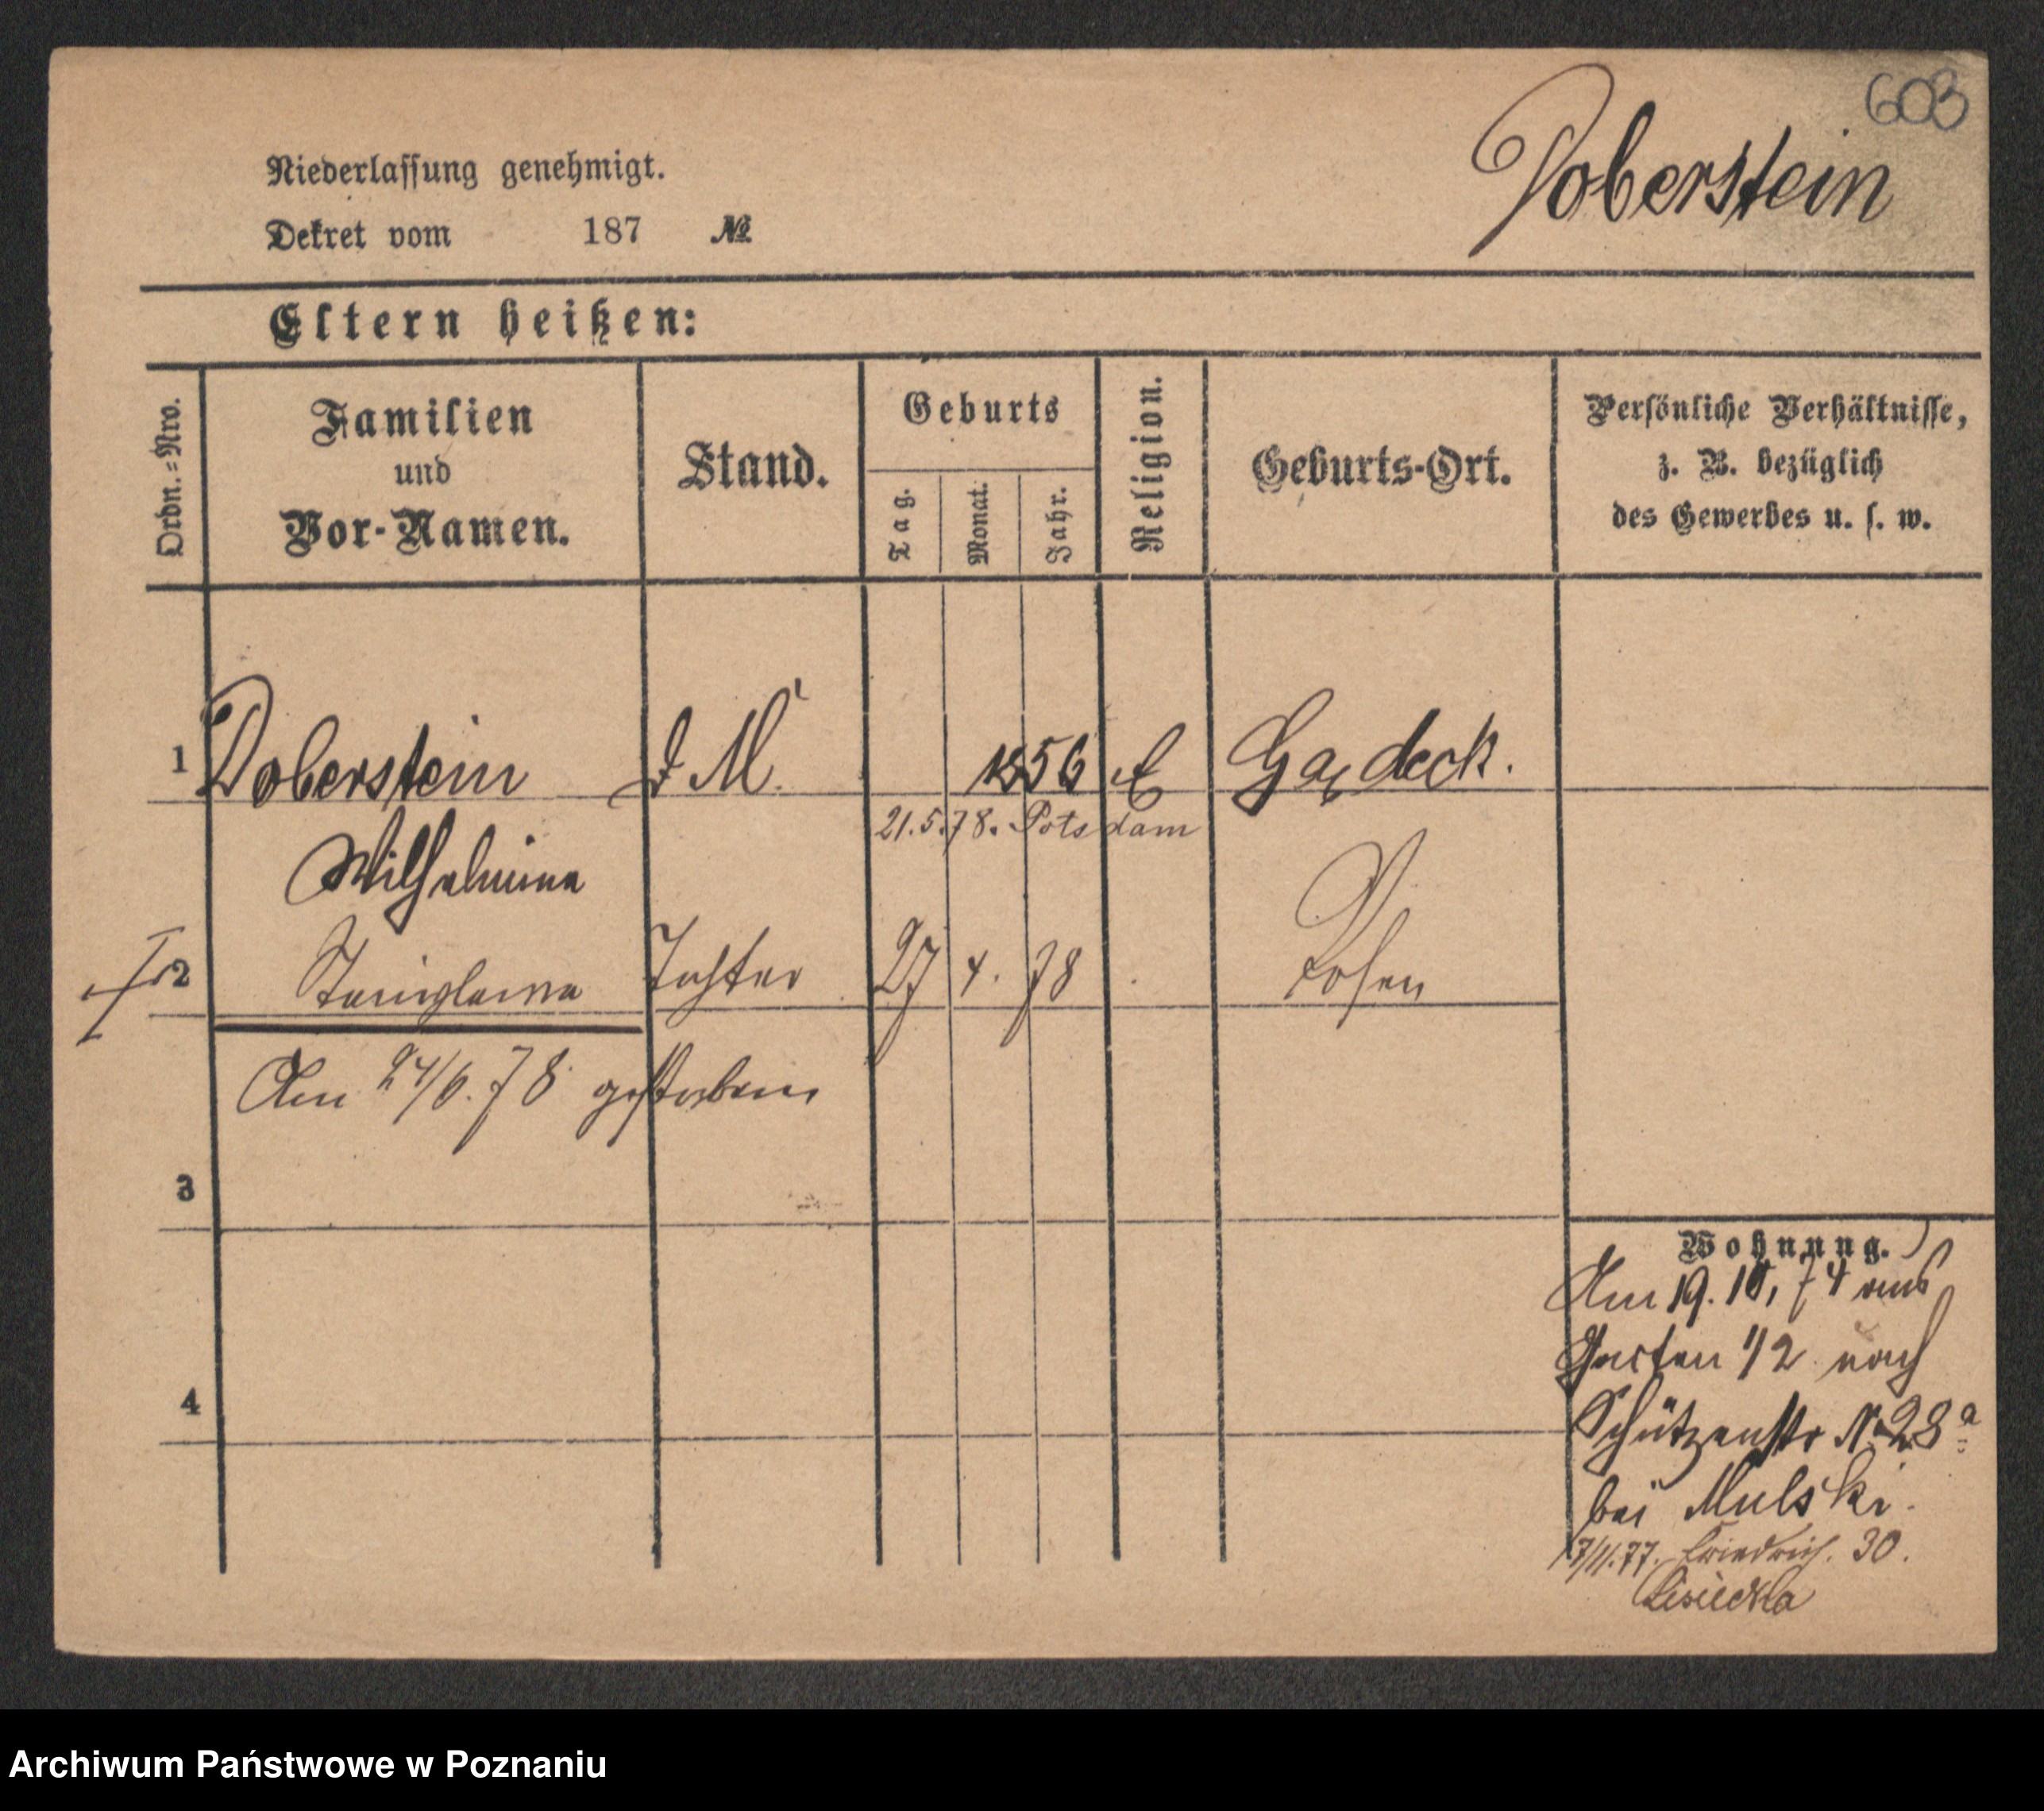 603
Doberstein
Niederlassung genehmigt.
Dekret vom 187 №
Eltern heißen:
Ordn.=Nro.
Familien
und
Vor-Namen.
Stand.
Geburts
Tag.
Monat.
Jahr.
Religion.
Geburts-Ort.
Persönliche Verhältnisse,
z. B. bezüglich
des Gewerbes u. s. w.
1 Doberstein d M. 1856 E
21.5.78. Potsdam
Wilhelmina
2 Tochter 27 4. 78 Posen
Am 24/6. 78 gestorben
3
4
Wohnung.
Am 19. 10, 74 aus
Garten 12 nach
Schützenstr No 28a
bei Mulski.
7/11.77. Friedrich. 30.
Lisiecka
Archiwum Państwowe w Poznaniu